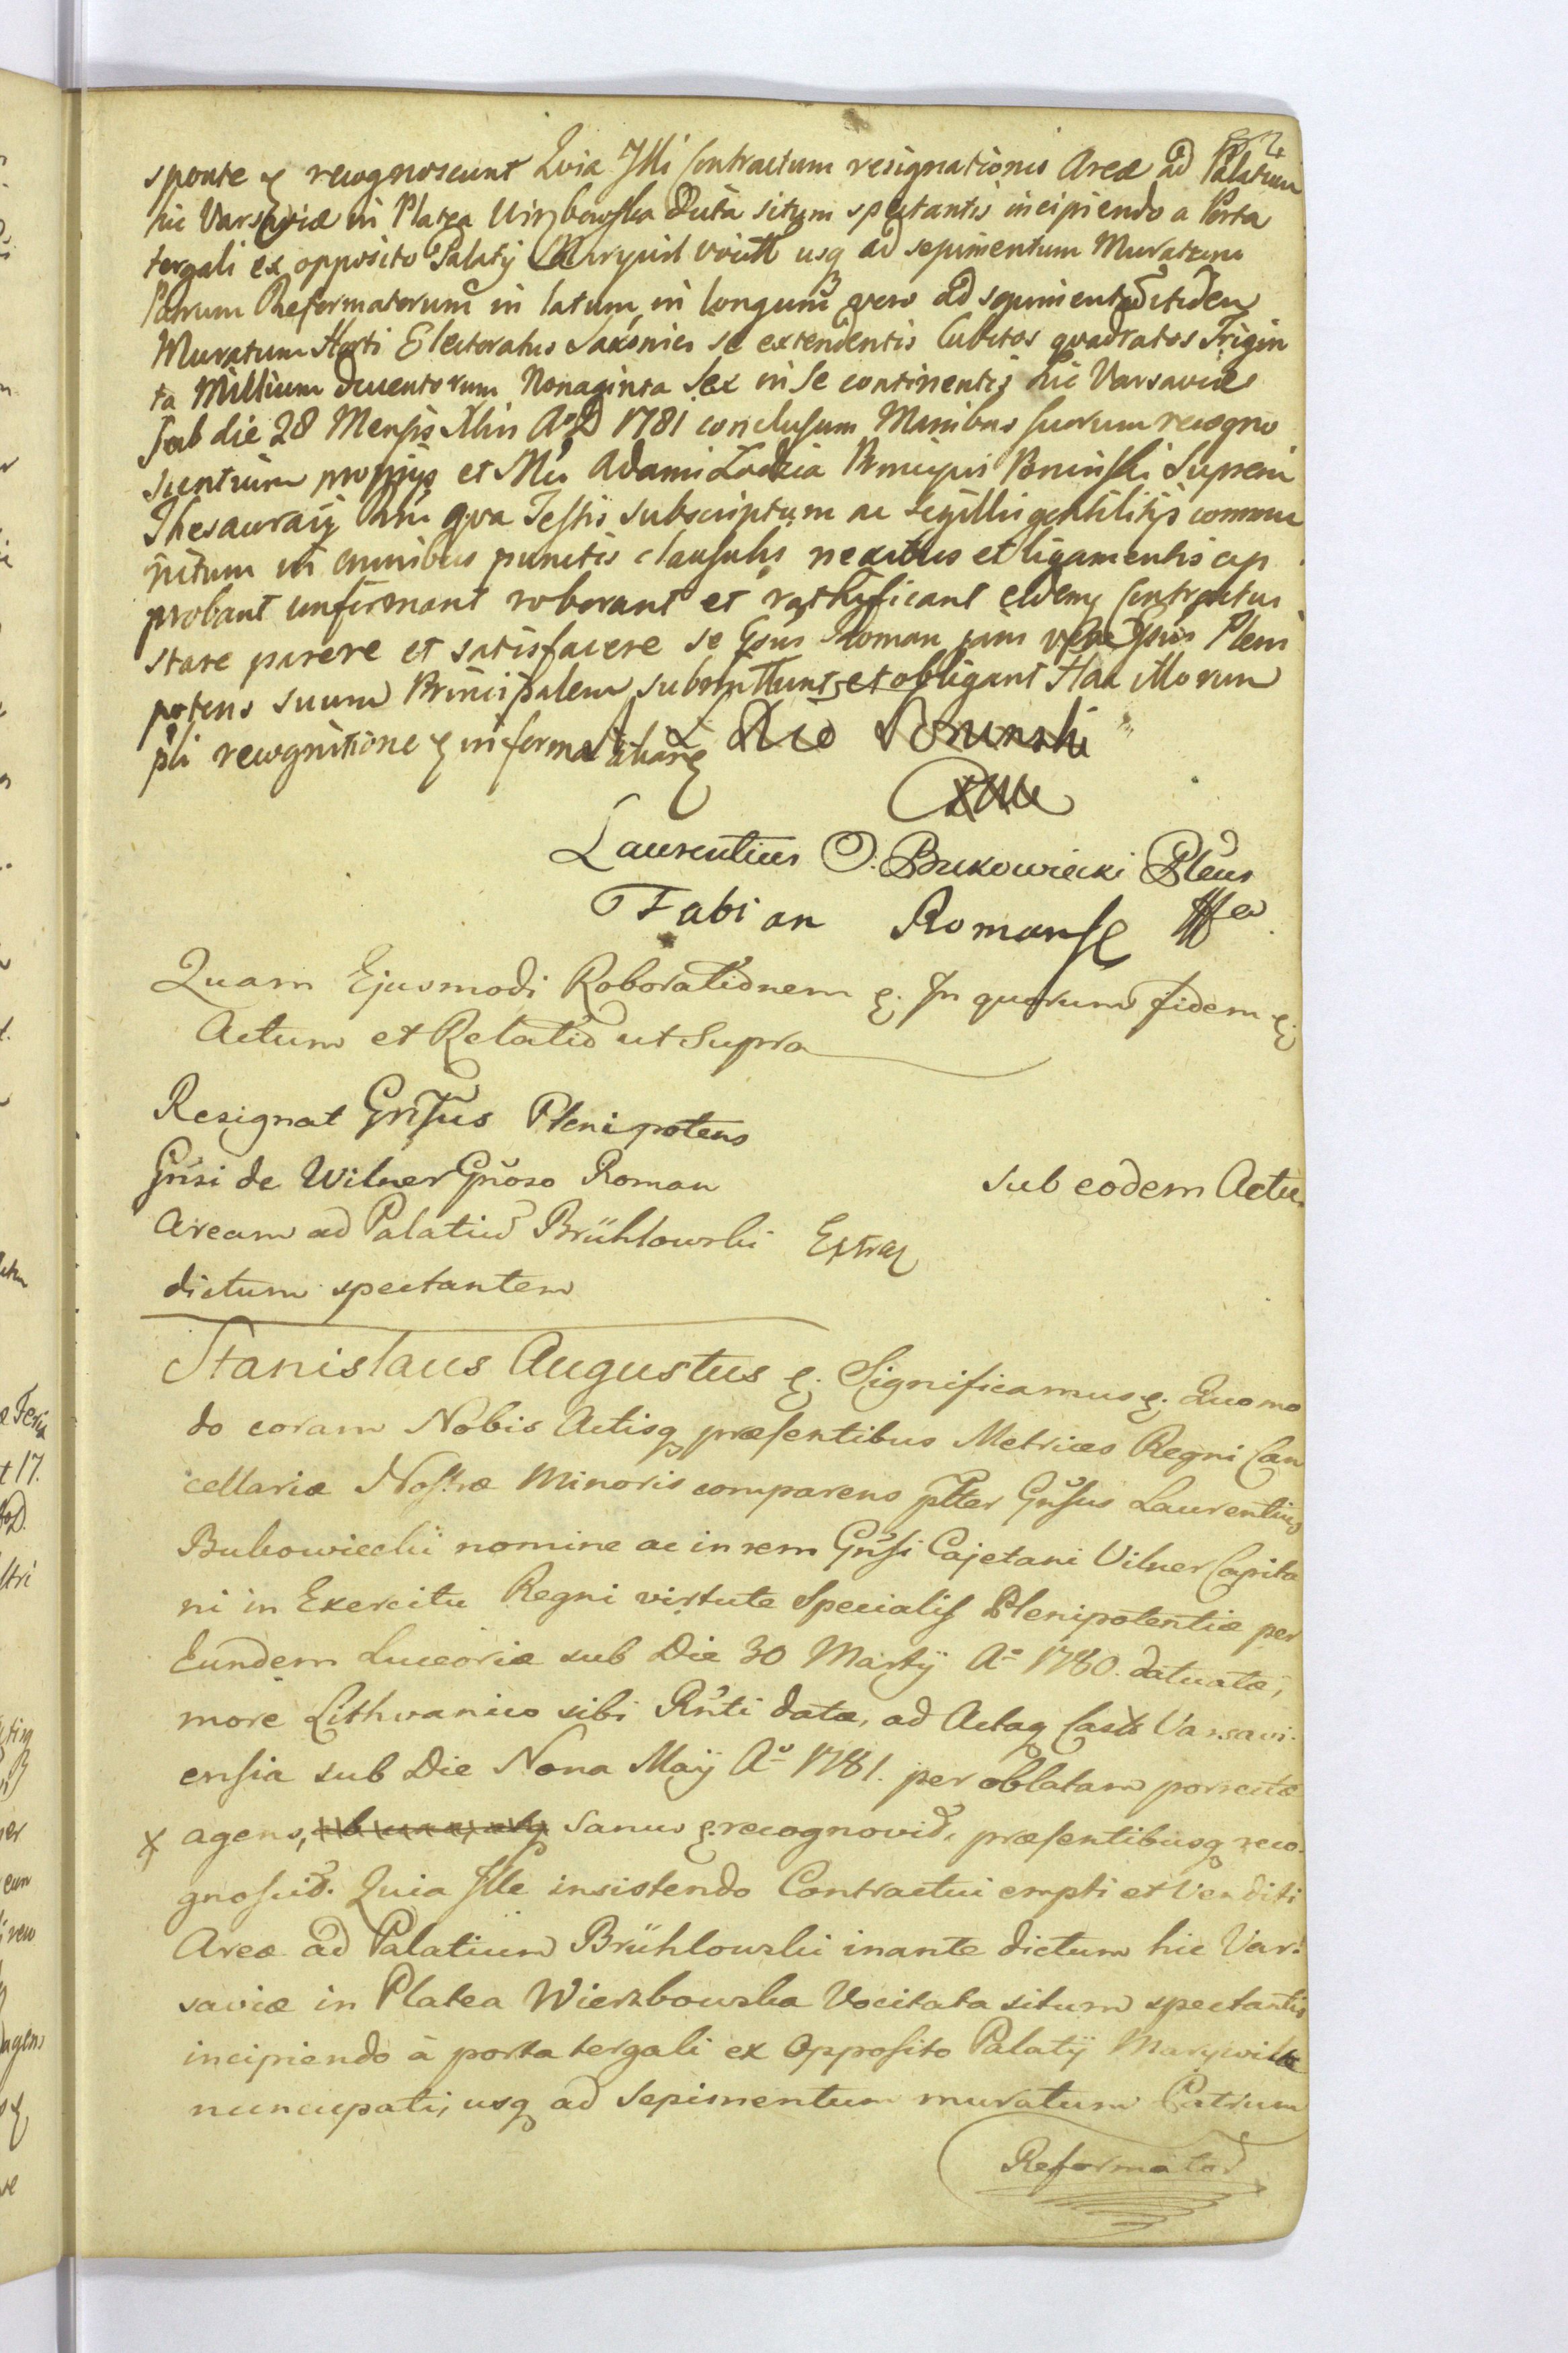 sponte & recognoscunt Quia Illi Contractum resignationis Areæ ad Palatium
hic Varsaviæ in Platea Wirzbowska dicta situm spectantis incipiendo a Porta
tergali ex opposito Palatij Maryvil usq ad sepimentum Muratum
Patrum Reformatorum in latum, in longum vero ad sepimentum itidem
Muratum Horti Electoratus Saxonici se extendentis Cubitos quadratos Trigin
ta Millium ducentorum Nonaginta Sex in se continentis hic Varsaviæ
sub die 28 Mensis Xbris Ao D 1781 conclusum Manibus suorum recogno
scentium proprijs et Mci Adami Lodzia Principis Poninski Supremi
Thesaurarij Rni qva Testis subscriptum ac sigillis gentilitijs commu
nitum in omnibus punctis clausulis nexibus et ligamentis ap
probant confirmant roborant et rathyficant eidemq Contractui
stare parere et satisfacere se Gsus Roman jam vero Gsus Pleni
potens suum Principalem submittunt et obligant Hac illorum
pti recognitione & in forma
Laurentius O. Bukowiecki Plens
Fabian Roman
Quam Ejusmodi Roborationem &. In quorum fidem &.
Actum et Relatio ut Supra
Resignat Gnsus Plenipotens
Gnsi de Wilner Gnoso Roman
sub eodem Actu
Aream ad Palatiu Brühlowski Extrag
dictum spectantem
Stanislaus Augustus &. Significamus &. Quomo
do coram Nobis Actisq præsentibus Metrices Regni Can
cellariæ Nostræ Minoris comparens ptter Gnsus Laurentius
Bukowiecki nomine ac in rem Gnsi Cajetani Vilner Capita
ni in Exercitu Regni virtute Specialis Plenipotentiæ per
Eundem Luceoriæ sub Die 30 Martij Ao 1780. datuatæ,
more Lithvanico sibi Rnti datæ, ad Actaq Castr Varsavi
ensia sub Die Nona Maij Ao 1781. per oblatam porrectæ
x agens, sanus & recognovit, præsentibusq reco
gnoscit. Quia Ille insistendo Contractui empti et Venditi
Areæ ad Palatium Brühlowski inante dictum hic Var
saviæ in Platea Wierzbowska Vocitata situm spectantis
incipiendo à porta tergali ex Opposito Palatij Marywille
nuncupati, usq ad Sepimentum muratum Patrum
Reformator